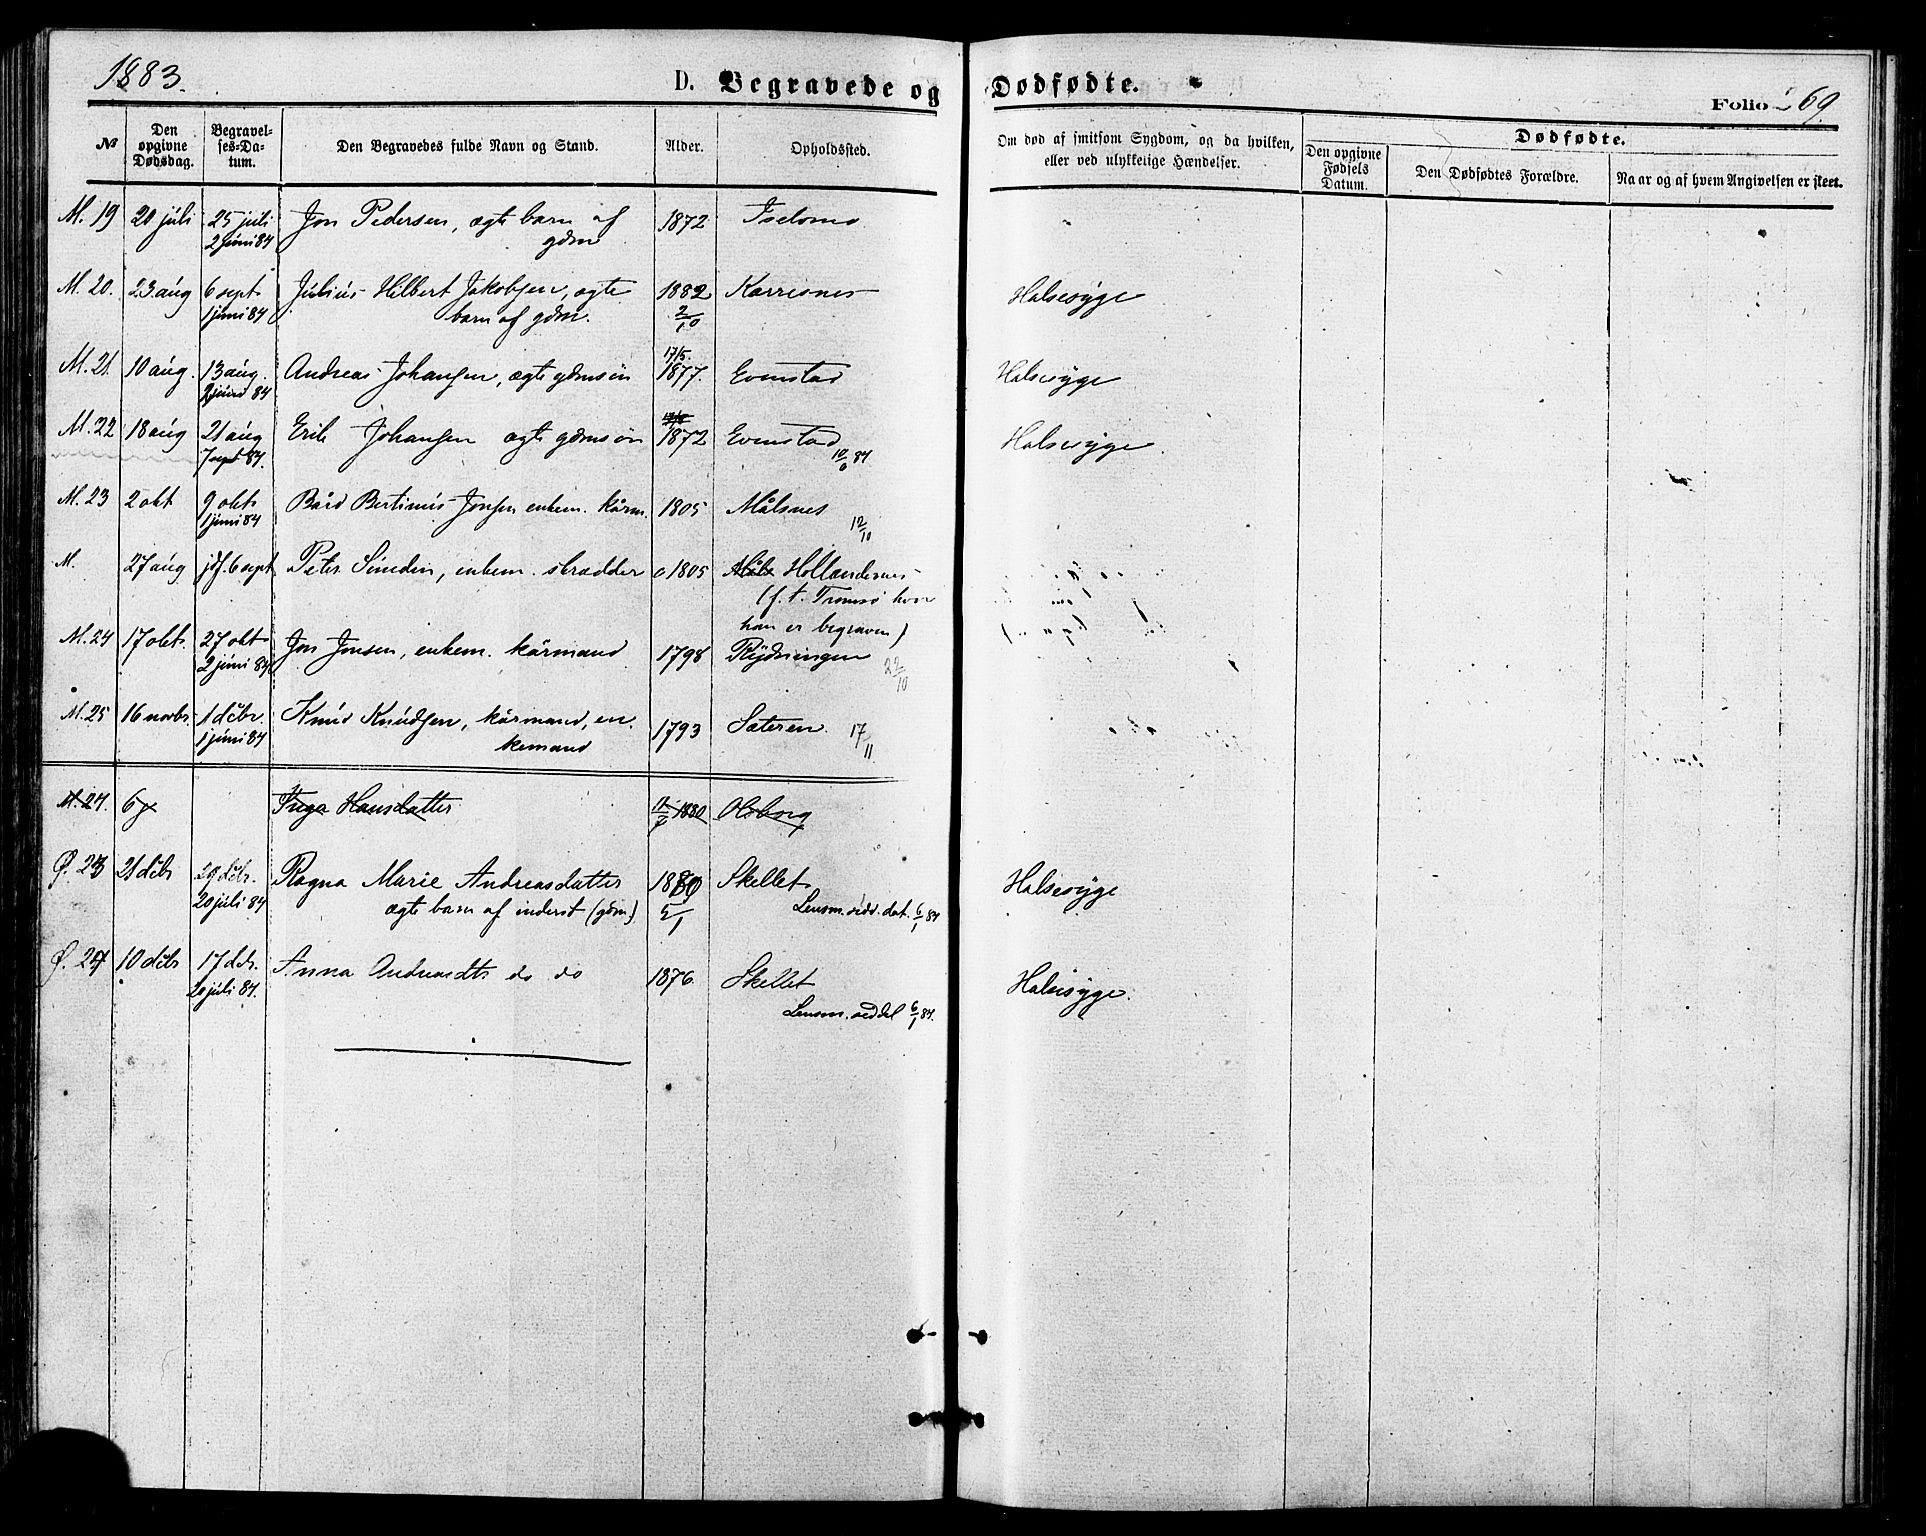 1883.
D. Begravede og Dødfødte.
Folio 269.
№
Den opgivne Dødsdag.
Begravelses-Datum.
Den Begravedes fulde Navn og Stand.
Alder.
Opholdssted.
Om død af smitsom Sygdom, og da hvilken, eller ved ulykkelige Hændelser.
Dødfødte.
Den opgivne Fødsels Datum.
Den Dødfødtes Forældre.
Naar og af hvem Angivelsen er skeet.
M. 19 20 juli 25 juli Jon Pedersen, ægte barn af 1872
2 juni 84 gdm
M. 20. 23 aug 6 sept Julius Hilbert Jakobsen, ægte 1882 Karresnes Halsesyge
1 juni 84 barn af gdm. 2/10
17/5.
M. 21. 10 aug. 13 aug. Andreas Johansen, ægte gdmsøn 1877. Evenstad Halsesyge
2 juni 84
M. 22 18 aug 21 aug Erik Johansen ægte gdmsøn 1872 Evenstad Halsesyge
7 sept 84.
M. 23 2 okt 9 okt Bård Bertinus Jonsen enkem. kårm. 1805 Målsnes
1 juni 84 12/10
M. 27 aug jdf. 6 sept Peter Simeden, enkem. skrædder c 1805 Hollendernes
(f. t. Tromsø hvor
han er begraven)
M. 24 17 okt. 27 okt Jon Jonsen, enkem. kårmand 1798 Rydningen
2 juni 84 22/10
M. 25 16 novbr 1 dcbr. Knud Knudsen, kårmand, en 1793 Sæteren. 17/11
1 juni 84 kemand
M. 27. 6 Inga Hansdatter 1880 Olsborg
Ø. 23 21 dcbr 29 dcbr. Ragna Marie Andreasdatter 1880 Skellet Halsesyge
20 juli 84 ægte barn af inderst (gdm) 5/1 Lensm. sedd. dat. 6/1 84
Ø. 24 10 dcbr 17 dcbr. Anna Andreasdtr do do 1876 Skellet Halsesyge.
20 juli 84. Lensm. seddel 6/1 84.